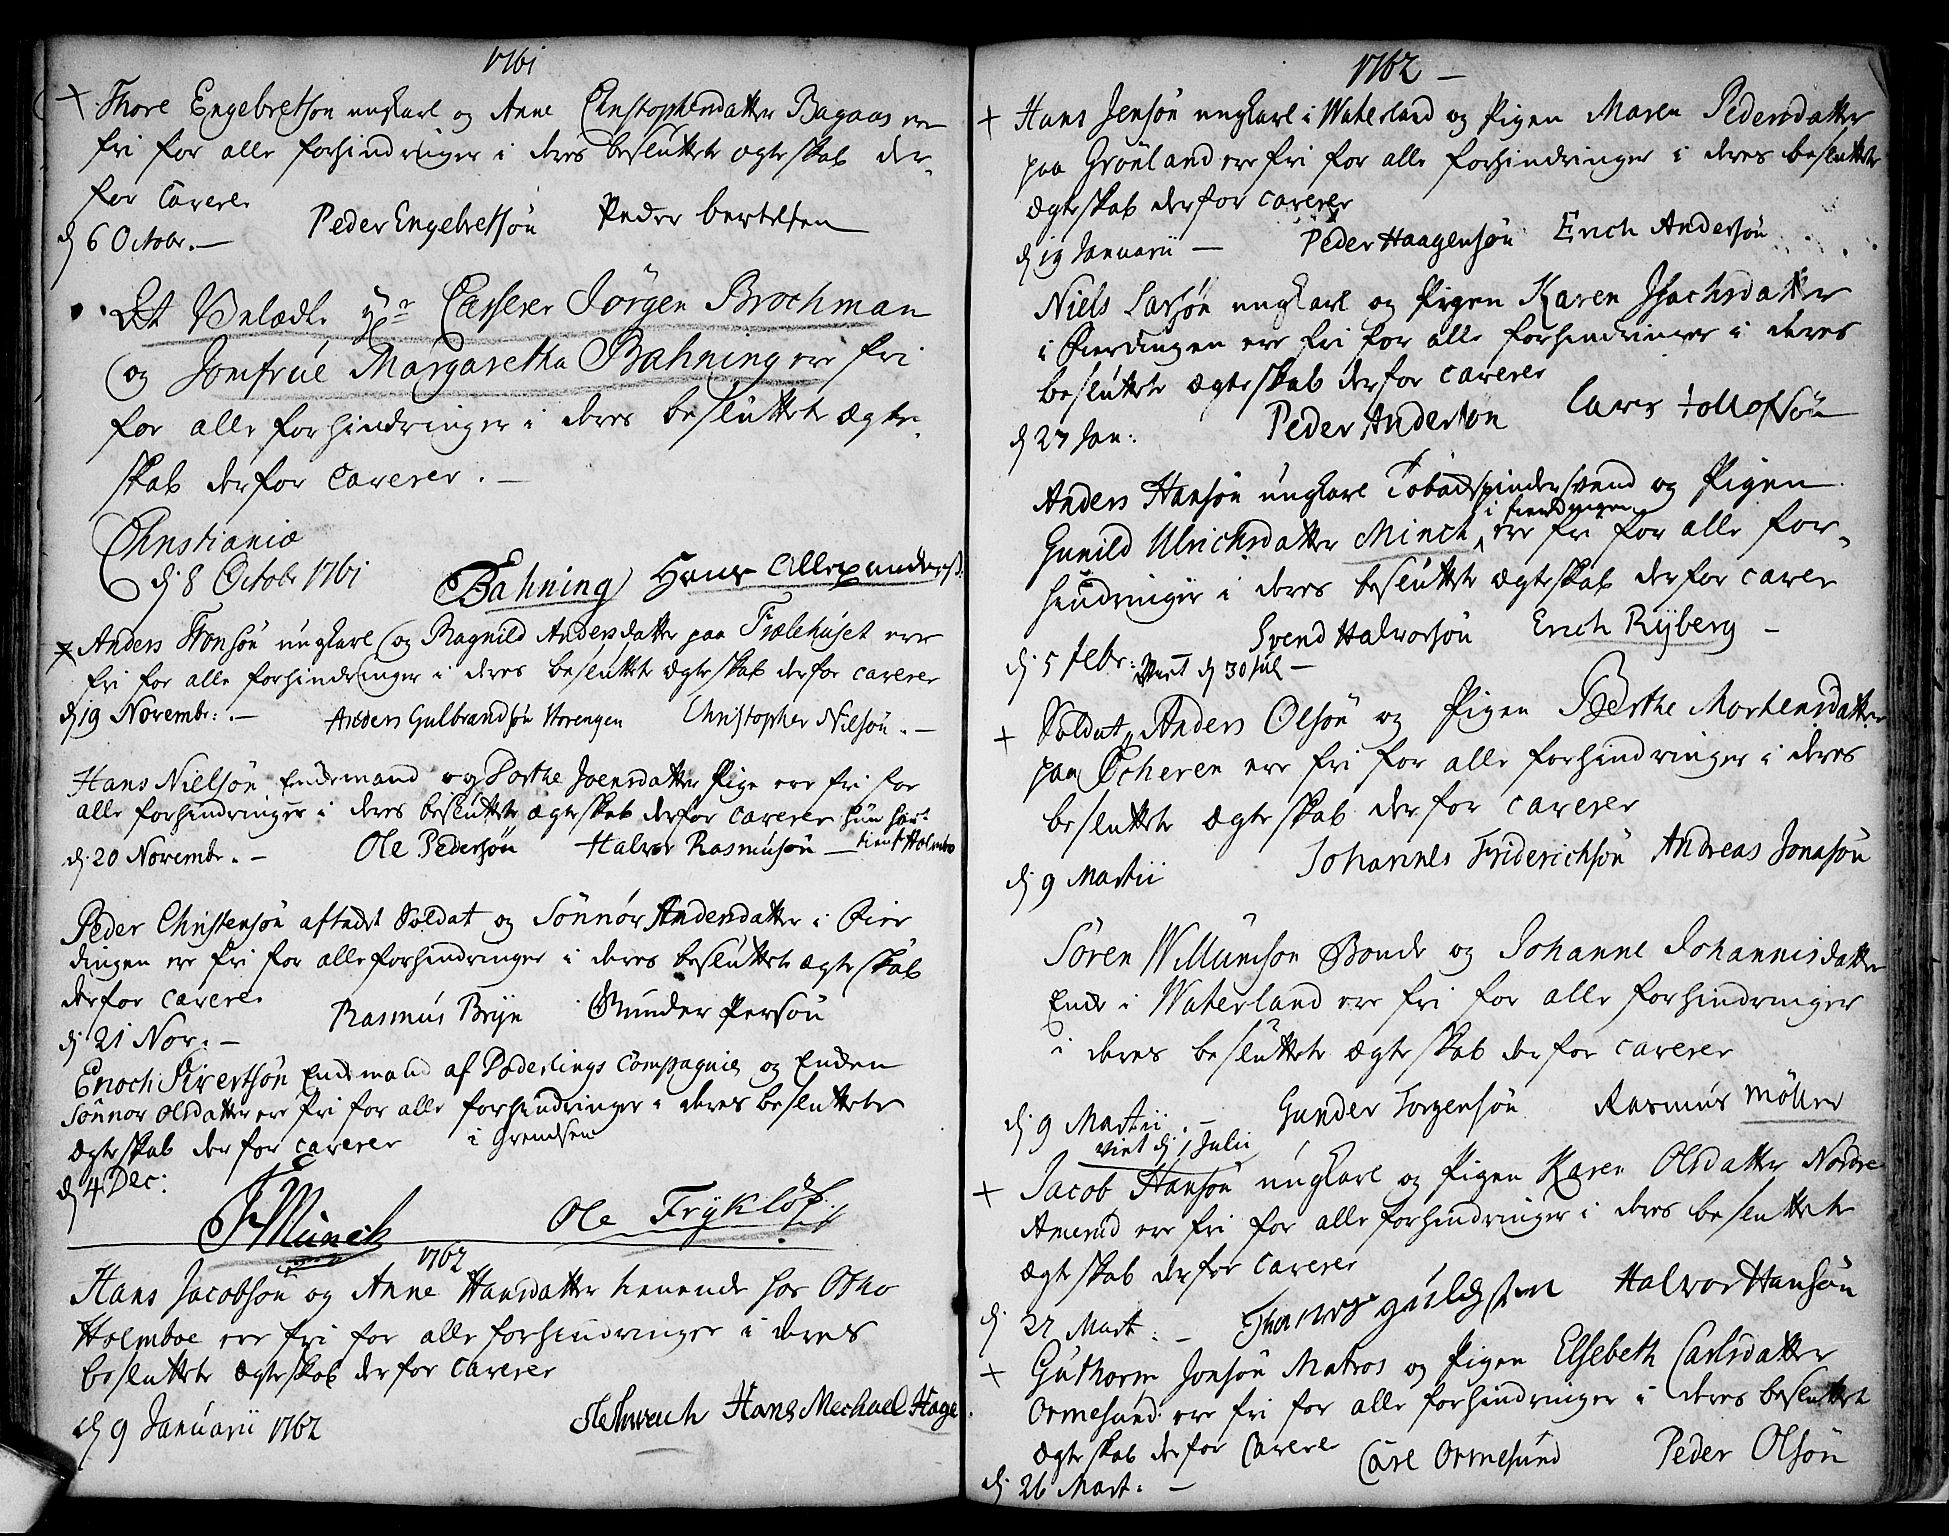 1761
+ Thore Engebretsøn ungkarl og Anne Christophersdatter Bagaas ere
fri for alle forhindringer i deres besluttete ægteskab der-
for Caverer
d 6 Octobr. — Peder Engebretsøn Peder bertelsen
Det Velædle Hr Casserer Jørgen Brochman
og Jomfrue Margaretha Bahning ere fri
for alle forhindringer i deres besluttete ægte-
skab derfor Caverer. —
Christiania
d. 8 Octobr 1761 Bahning Hans Allexanders.
+ Anders Hansøn ungkarl og Ragnild Andersdatter paa Fixlehuset ere
fri for alle forhindringer i deres besluttete ægteskab derfor caverer
d 19 Novembr: — Anders Gulbrandsøn Vorengen Christopher Nilsøn. —
Hans Nielsøn Enkemand og Dorthe Joensdatter Pige ere fri for
alle forhindringer i deres besluttete ægteskab derfor Caverer hun har
tient Holmbo
d. 20 Novembr. — Ole Pedersøn Halvor Rasmusøn —
Peder Christensøn aftadt Soldat og Sønnør Andersdatter i Fier
dingen ere fri for alle forhindringer i deres besluttete ægteskab
derfor Caverer
d. 21 Nov. — Rasmus Bryn Gunder Persøn
Enoch Sivertsøn Enkemand af Poderlings Compagnie og Enken
Sønnor Olsdatter ere fri for alle forhindringer i deres besluttete
ægteskab derfor caverer i Grendsen
d 4 Dec:
Münch Ole Frykløf
1762
Hans Jacobsøn og Anne Hansdatter tienende hos Otho
Holmboe ere fri for alle forhindringer i deres
besluttete ægteskab derfor Caverer
d 9 Januarii 1762 Hans Mechael Hage
1762 —
+ Hans Jensøn ungkarl i Waterland og Pigen Maren Pedersdatter
paa Grønland ere fri for alle forhindringer i deres besluttete
ægteskab derfor caverer
d 19 Januarii — Peder Haagensøn Erich Andersøn
Niels Larsøn ungkarl og Pigen Karen Isachsdatter
i Fierdingen ere fri for alle forhindringer i deres
besluttete ægteskab derfor caverer
d 27 Jan: Peder Anderson Lars Tollofsøn
Anders Hansøn ungkarl Tobackspindersvend og Pigen
i fierdingen
Gunild Ulrichsdatter Minch ere fri for alle for-
hindringer i deres besluttete ægteskab derfor caver
d. 5 febr: Svend Halvorsøn Erich Ryberg —
Viet d 30 Jul —
+ Soldat Anders Olsøn og Pigen Berthe Mortensdatter
paa Echeren ere fri for alle forhindringer i deres
besluttete ægteskab derfor caverer
d. 9 Martii Johannes Friderichsøn Andreas Jonasøn
Søren Willumson Bonde og Johanne Johannisdatter
Enke i Waterland ere fri for alle forhindringer
i deres besluttete ægteskab derfor caverer
d. 9 Martii. — Gunder Torgensøn Rasmus Møller
viet d. 1 Julii
+ Jacob Hansøn ungkarl og Pigen Karen Olsdatter Nordre
Amerud ere fri for alle forhindringer i deres besluttete
ægteskab derfor Caverer
d 22 Mart: — Halvor Hansøn
+ Guthorm Jonsøn Matros og Pigen Elsebeth Carlsdatter
Ormesund ere fri for alle forhindringer i deres besluttet
ægteskab derfor Caverer Carl Ormesund Peder Olsøn
d 26 Mart: —